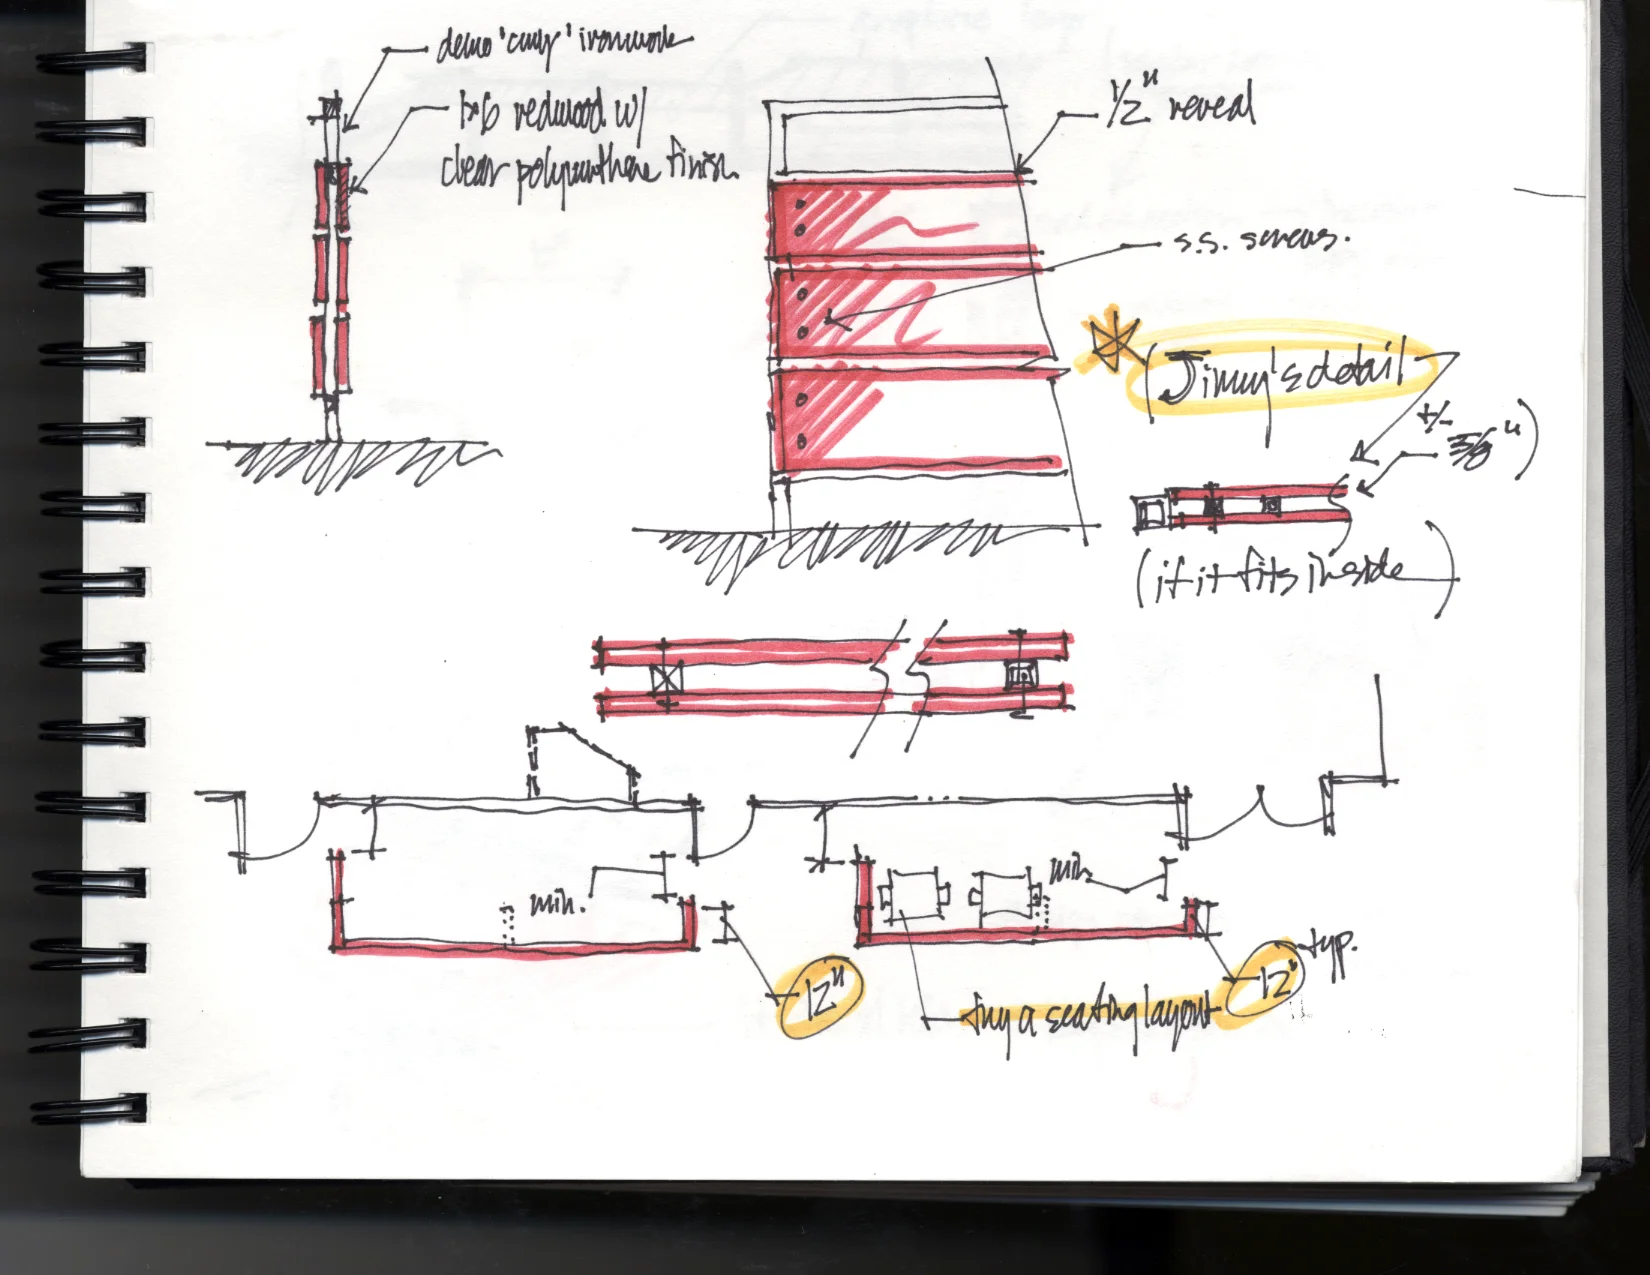 demo 'curly' ironwork
1x6 redwood w/
clear polyurethane finish.
1/2" reveal
s.s. screws.
(Jimmy's detail
+/-
3/8")
(if it fits inside)
min.
min.
12"
12" typ.
try a seating layout